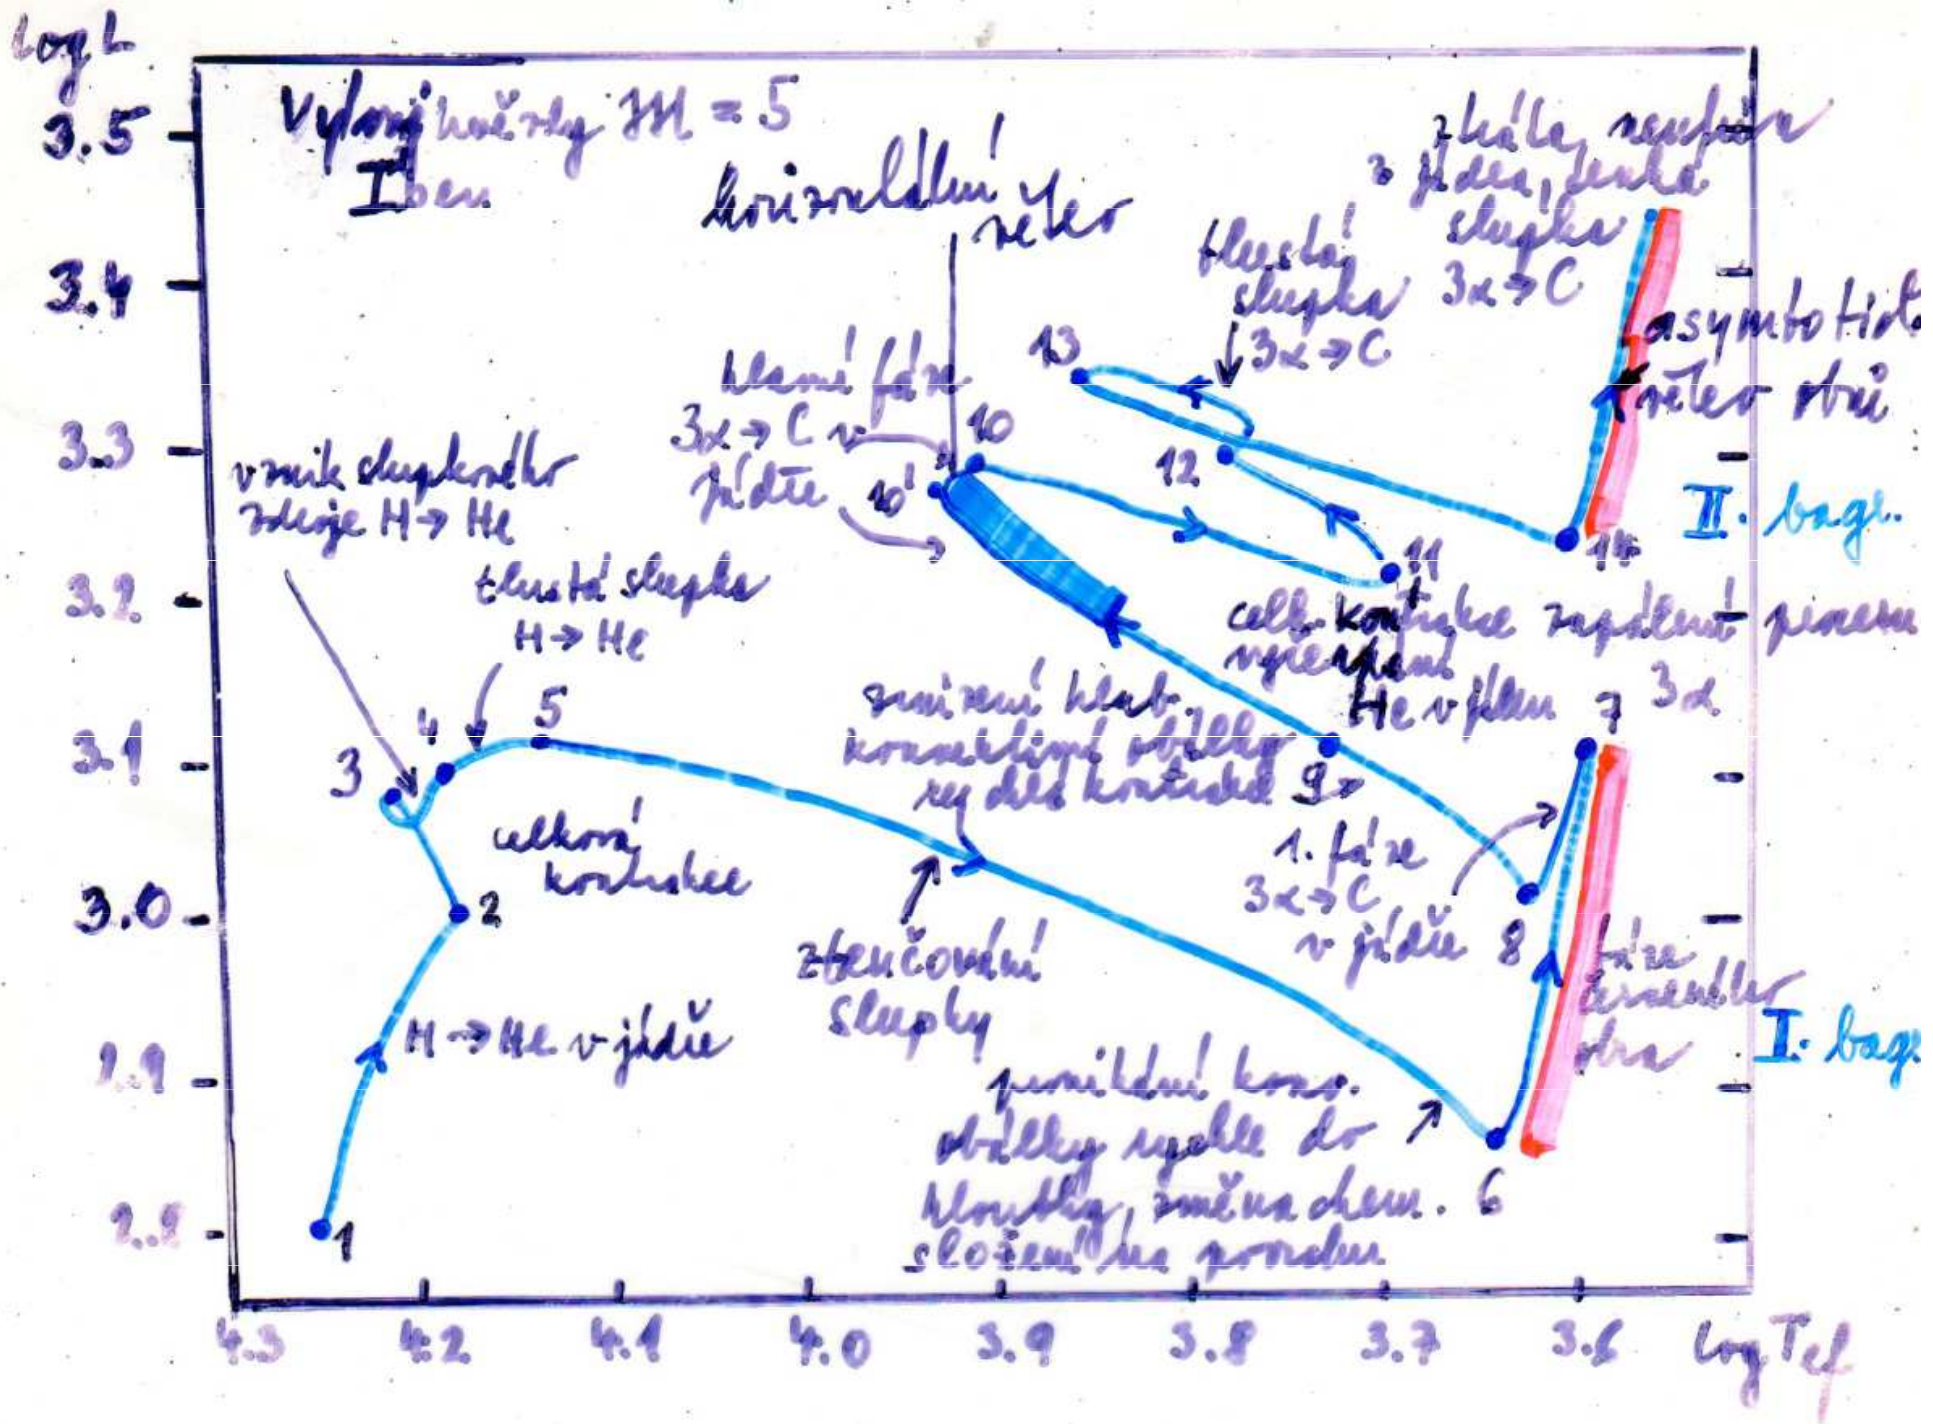 log L
3.5
3.4
3.3
3.2
3.1
3.0
2.9
2.8
Vývoj hvězdy M = 5
Iben
horizontální
větev
ztráta
jádra, tenká
slupka
3α → C
tlustá
slupka
3α → C
asymptotická
větev obrů
II. bagr.
hlavní fáze
3α → C v
jádře
vznik slupkového
zdroje H → He
tlustá slupka
H → He
celk. kontrakce
vyčerpání
He v jádru
zapálení procesu
3α
snížení hloub.
konvektivní obálky
rychlá kontrakce
1. fáze
3α → C
v jádře
celková
kontrakce
ztenčování
slupky
H → He v jádře
fáze
červeného
obra
I. bagr.
pronikání konv.
obálky rychle do
hloubky, změna chem.
složení na povrchu
1
2
3
4
5
6
7
8
9
10
10'
11
12
13
14
4.3
4.2
4.1
4.0
3.9
3.8
3.7
3.6
log Tef